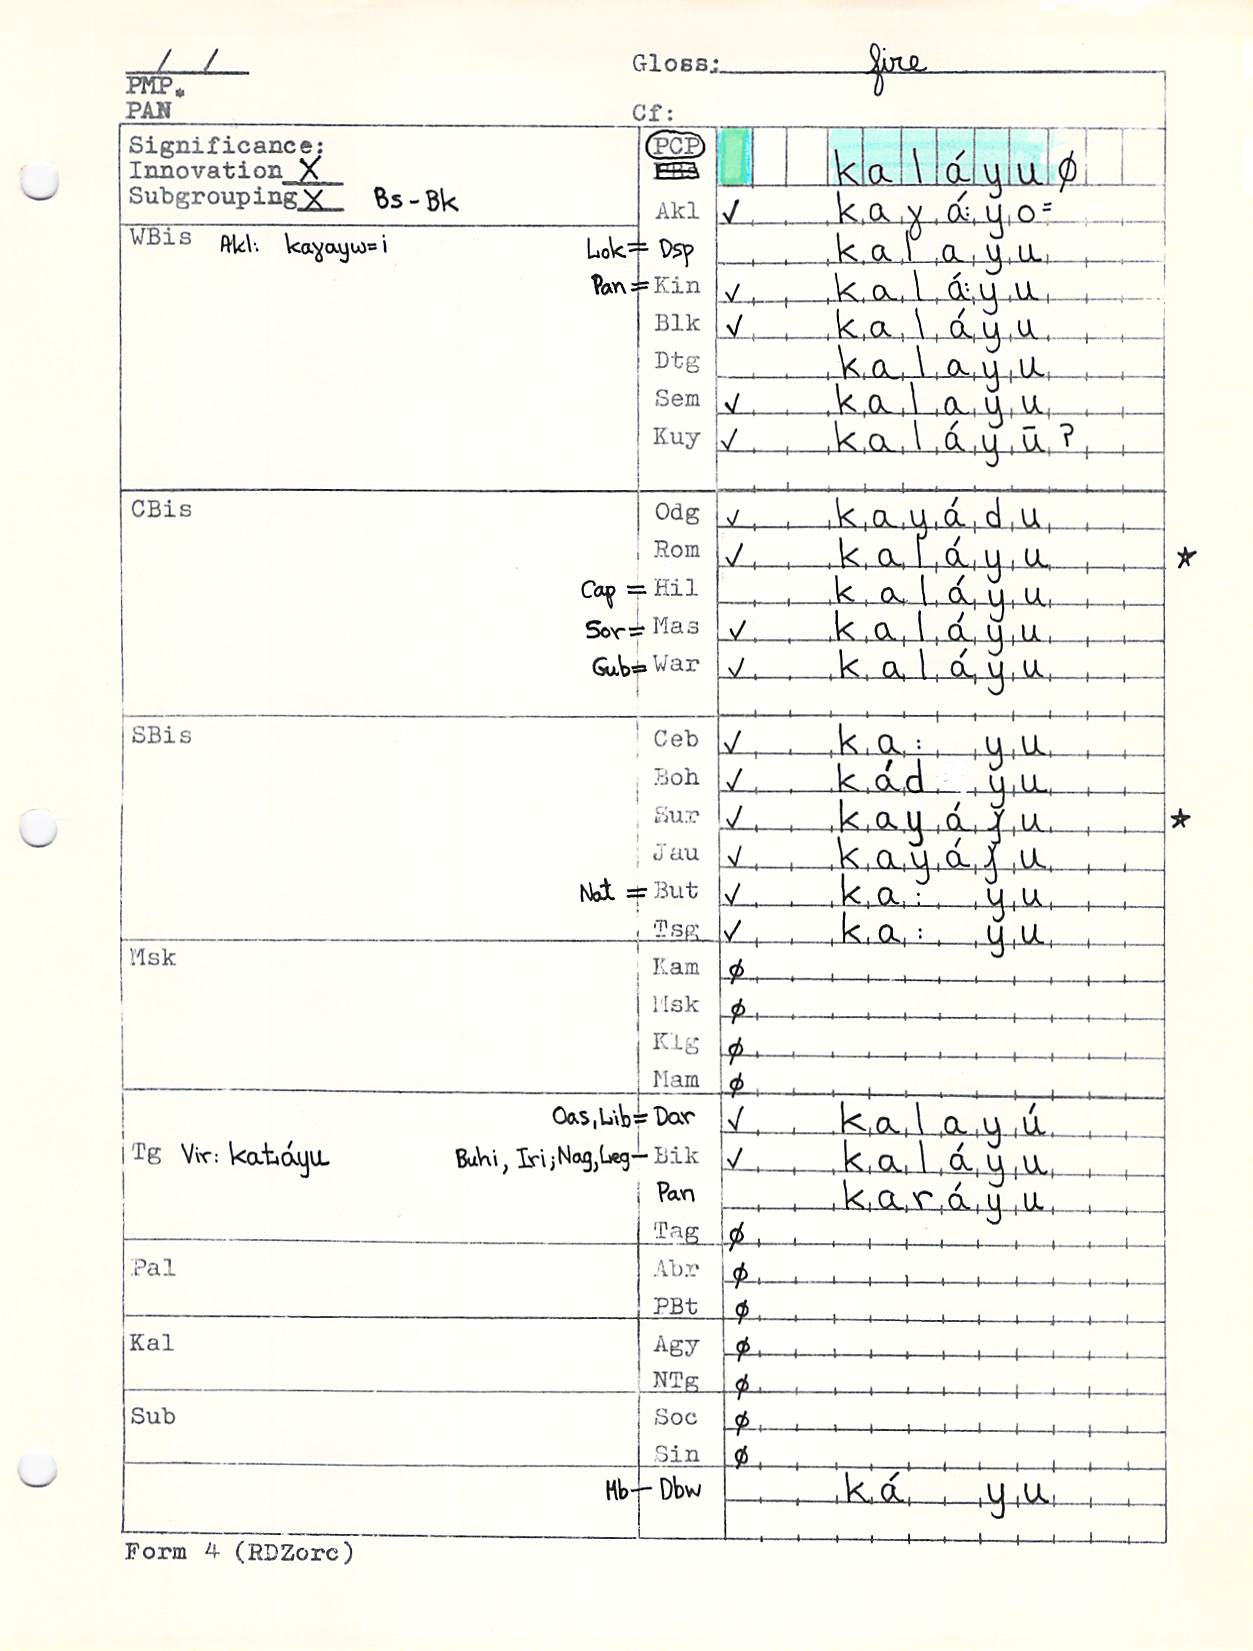 / /
Gloss: fire
PMP.
PAN Cf:
Significance: PCP kaláyuø
Innovation X PBs
Subgrouping X Bs-Bk
Akl ✓ kaɣá:yo=
WBis Akl: kaɣayw=i Lok= Dsp kalayu
Pan= Kin ✓ kalá:yu
Blk ✓ kaláyu
Dtg kalayu
Sem ✓ kalayu
Kuy ✓ kaláyūʔ
CBis Odg ✓ kayádu
Rom ✓ kaláyu ★
Cap = Hil kaláyu
Sor= Mas ✓ kaláyu
Gub= War ✓ kaláyu
SBis Ceb ✓ ka: yu
Boh ✓ kád yu
Sur ✓ kayáʝu ★
Jau ✓ kayáʝu
Nat = But ✓ ka: yu
Tsg ✓ ka: yu
Msk Kam ø
Msk ø
Klg ø
Mam ø
Oas, Lib= Dar ✓ kalayú
Tg Vir: katáyu Buhi, Iri; Nag, Leg— Bik ✓ kaláyu
Pan karáyu
Tag ø
Pal Abr ø
PBt ø
Kal Agy ø
NTg ø
Sub Soc ø
Sin ø
Mb— Dbw ká yu
Form 4 (RDZorc)